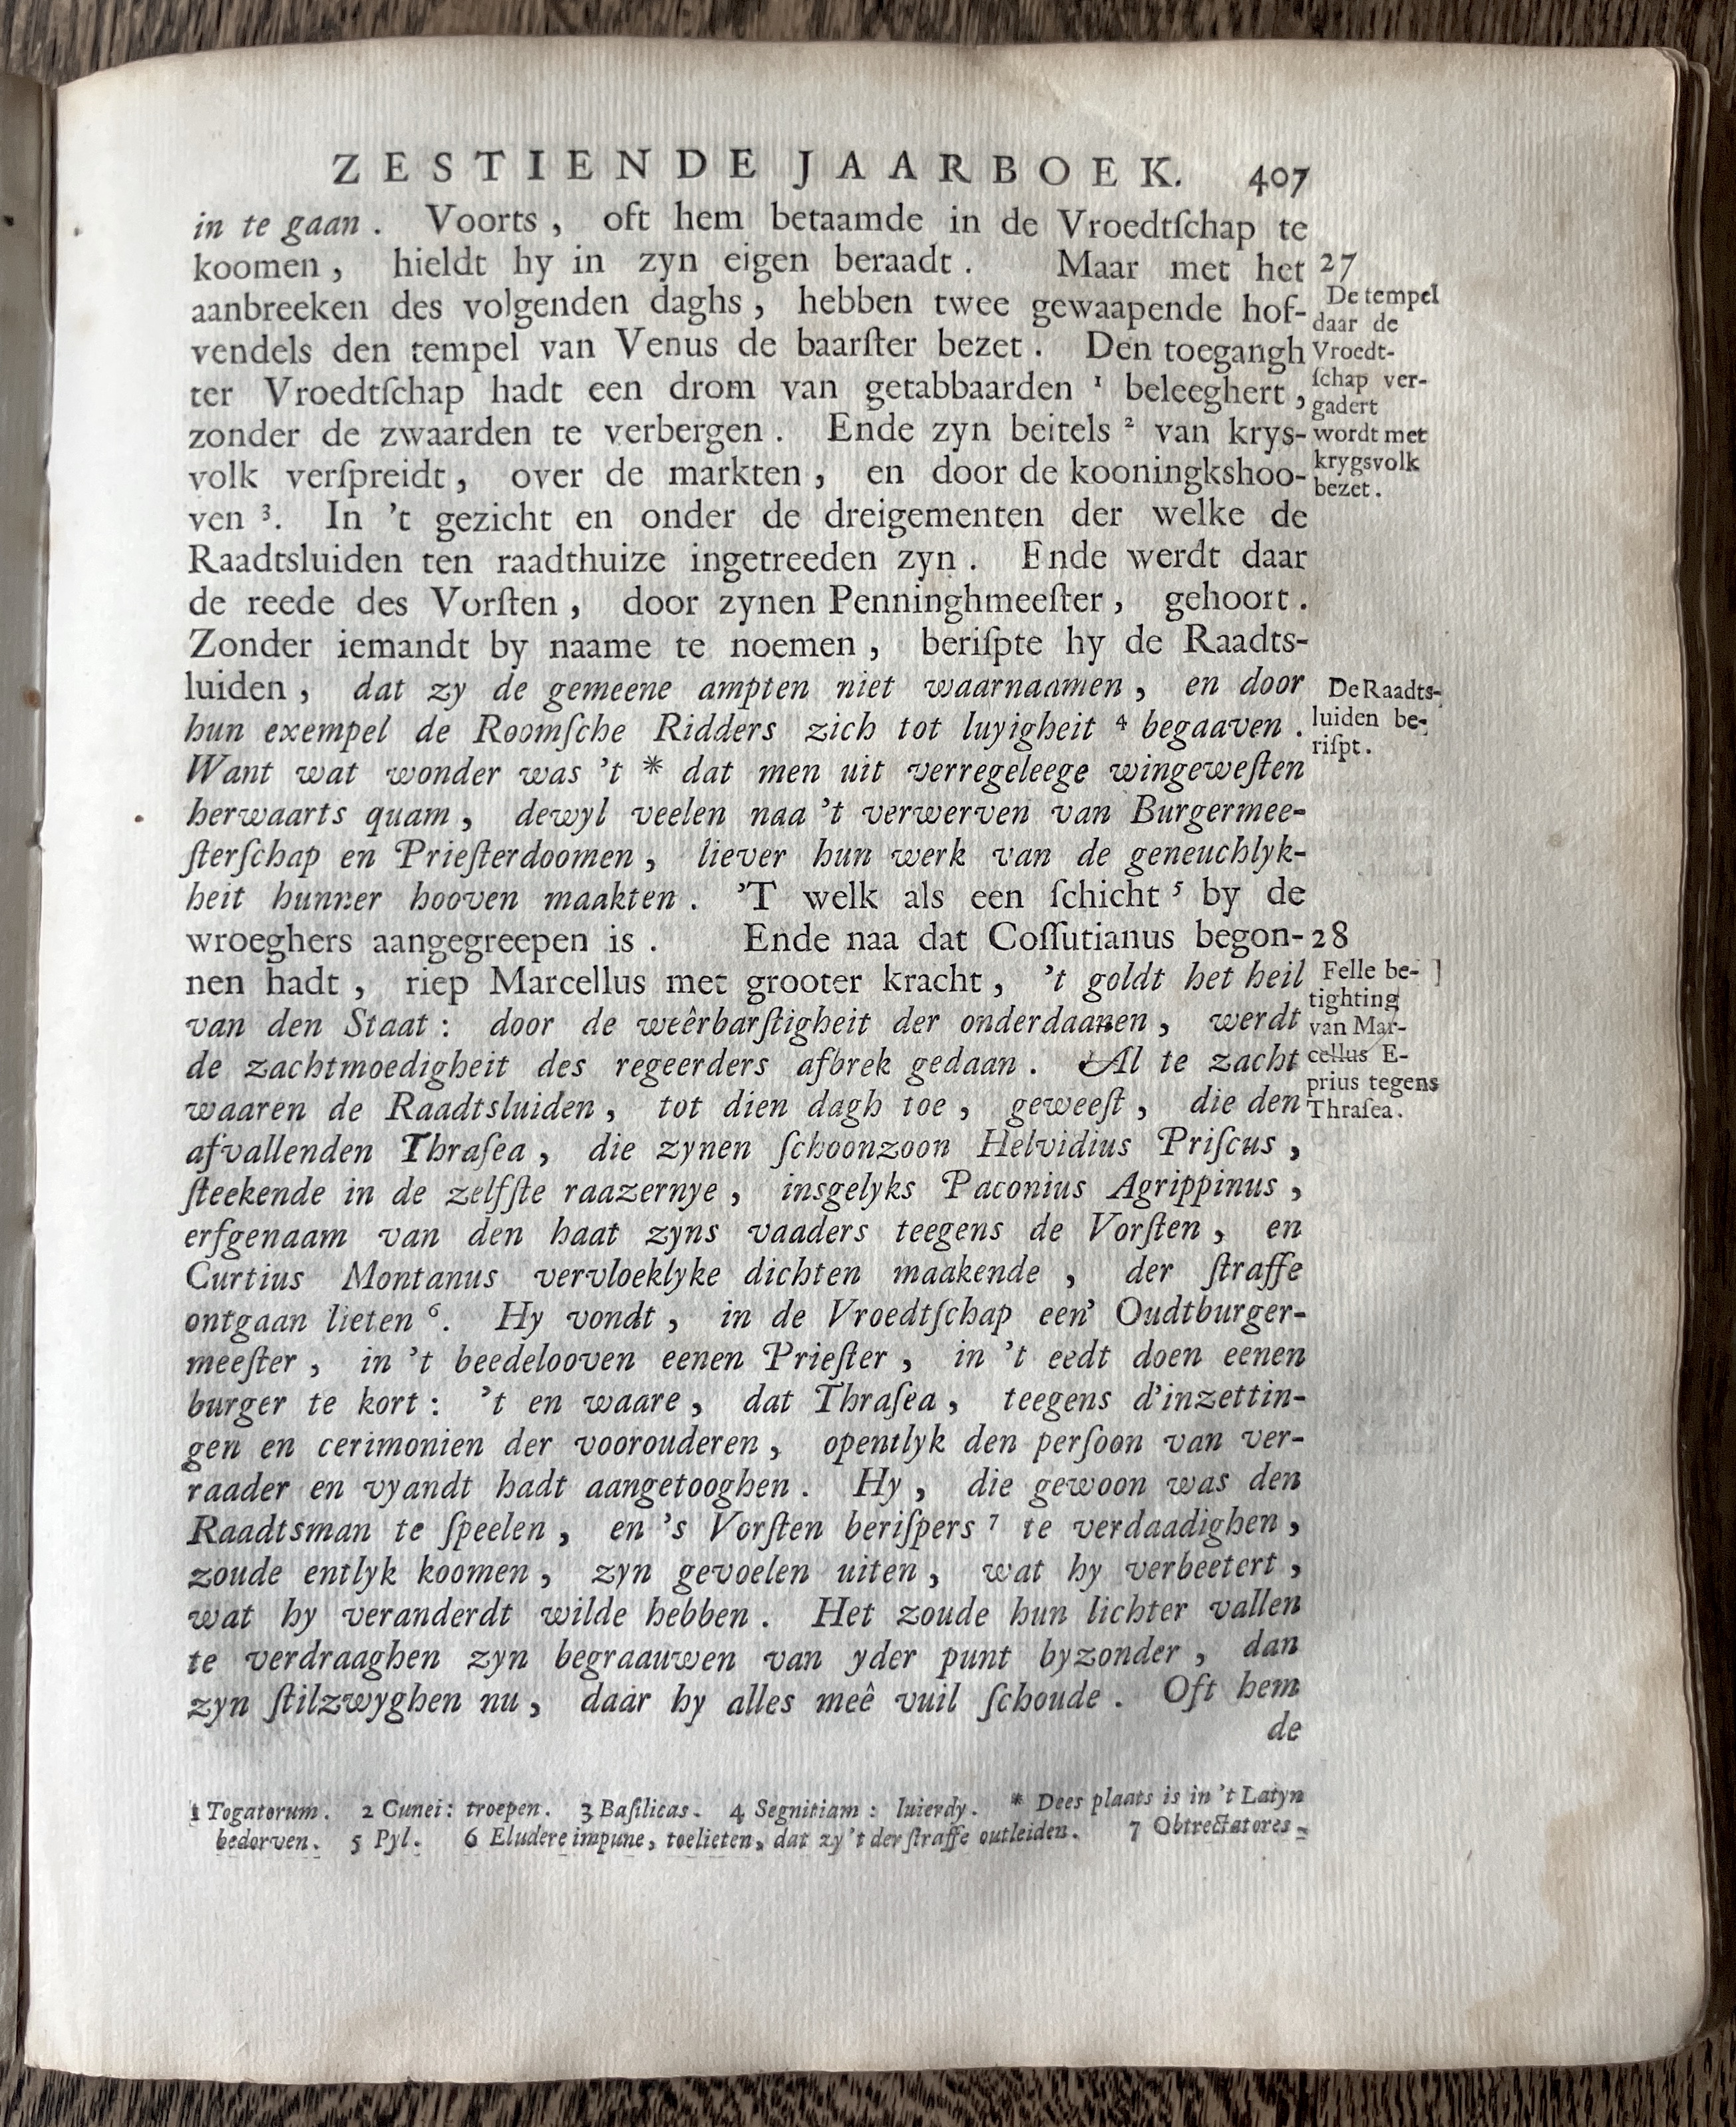 ZESTIENDE JAARBOEK. 407
in te gaan. Voorts, oft hem betaamde in de Vroedtſchap te
koomen, hieldt hy in zyn eigen beraadt. Maar met het
aanbreeken des volgenden daghs, hebben twee gewaapende hof-
vendels den tempel van Venus de baarſter bezet. Den toegangh
ter Vroedtſchap hadt een drom van getabbaarden ¹ beleeghert,
zonder de zwaarden te verbergen. Ende zyn beitels ² van krys-
volk verſpreidt, over de markten, en door de kooningkshoo-
ven ³. In 't gezicht en onder de dreigementen der welke de
Raadtsluiden ten raadthuize ingetreeden zyn. Ende werdt daar
de reede des Vorſten, door zynen Penninghmeeſter, gehoort.
Zonder iemandt by naame te noemen, beriſpte hy de Raadts-
luiden, dat zy de gemeene ampten niet waarnaamen, en door
hun exempel de Roomſche Ridders zich tot luyigheit ⁴ begaaven.
Want wat wonder was 't * dat men uit verregeleege wingeweſten
herwaarts quam, dewyl veelen naa 't verwerven van Burgermee-
ſterſchap en Prieſterdoomen, liever hun werk van de geneuchlyk-
heit hunner hooven maakten. 'T welk als een ſchicht ⁵ by de
wroeghers aangegreepen is. Ende naa dat Coſſutianus begon-
nen hadt, riep Marcellus met grooter kracht, 't goldt het heil
van den Staat: door de weêrbarſtigheit der onderdaanen, werdt
de zachtmoedigheit des regeerders afbrek gedaan. Al te zacht
waaren de Raadtsluiden, tot dien dagh toe, geweeſt, die den
afvallenden Thraſea, die zynen ſchoonzoon Helvidius Priſcus,
ſteekende in de zelfſte raazernye, insgelyks Paconius Agrippinus,
erfgenaam van den haat zyns vaaders teegens de Vorſten, en
Curtius Montanus vervloeklyke dichten maakende, der ſtraffe
ontgaan lieten ⁶. Hy vondt, in de Vroedtſchap een' Oudtburger-
meeſter, in 't beedelooven eenen Prieſter, in 't eedt doen eenen
burger te kort: 't en waare, dat Thraſea, teegens d'inzettin-
gen en cerimonien der voorouderen, opentlyk den perſoon van ver-
raader en vyandt hadt aangetooghen. Hy, die gewoon was den
Raadtsman te ſpeelen, en 's Vorſten beriſpers ⁷ te verdaadighen,
zoude entlyk koomen, zyn gevoelen uiten, wat hy verbeetert,
wat hy veranderdt wilde hebben. Het zoude hun lichter vallen
te verdraaghen zyn begraauwen van yder punt byzonder, dan
zyn ſtilzwyghen nu, daar hy alles meê vuil ſchoude. Oft hem
de
27
De tempel
daar de
Vroedt-
ſchap ver-
gadert
wordt met
krygsvolk
bezet.
De Raadts-
luiden be-
riſpt.
28
Felle be-
tighting
van Mar-
cellus E-
prius tegens
Thraſea.
1 Togatorum. 2 Cunei: troepen. 3 Baſilicas. 4 Segnitiam: luierdy. * Dees plaats is in 't Latyn
bedorven. 5 Pyl. 6 Eludere impune, toelieten, dat zy 't der ſtraffe outleiden. 7 Obtrectatores.